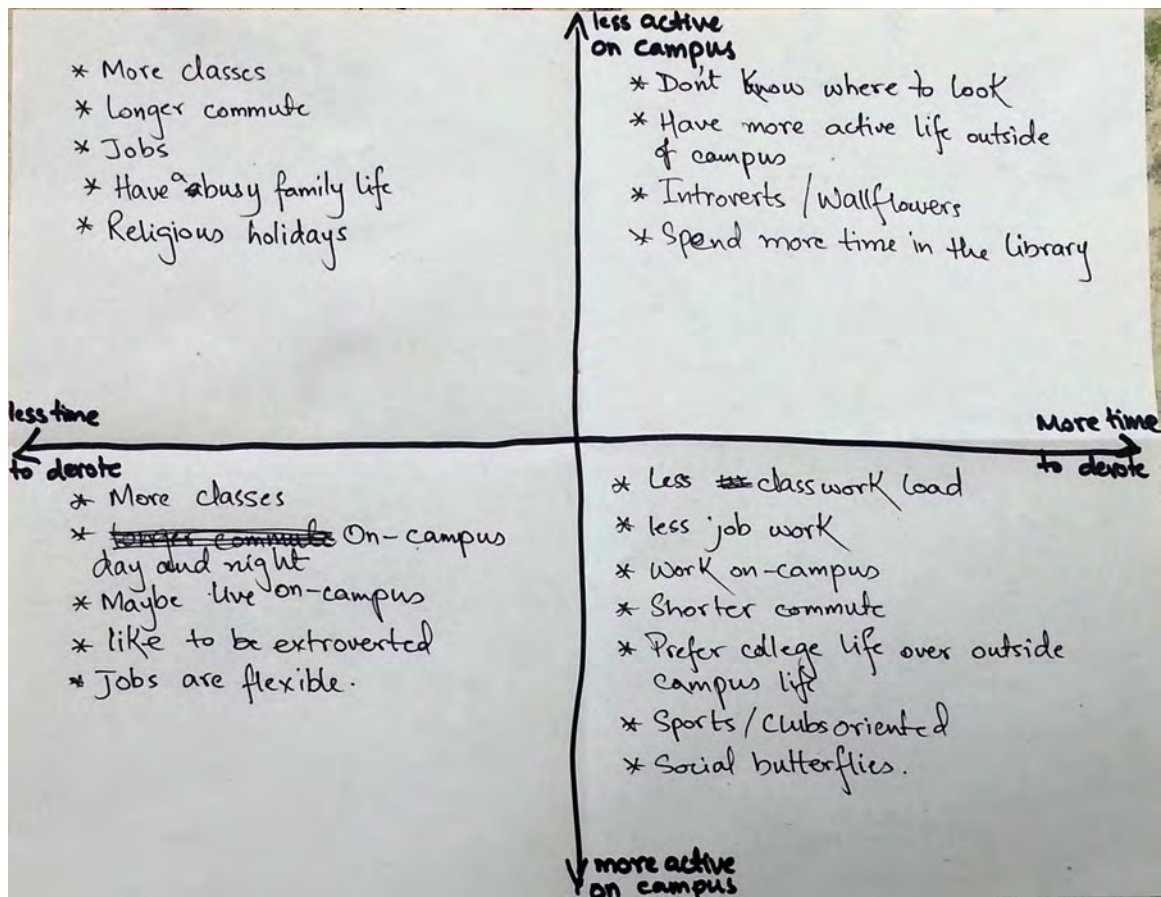 less active
on campus
* More classes
* Longer commute
* Jobs
* Have a busy family life
* Religious holidays
* Don't know where to look
* Have more active life outside
of campus
* Introverts / Wallflowers
* Spend more time in the library
less time
to devote
More time
to devote
* More classes
* longer commute On-campus
day and night
* Maybe live on-campus
* like to be extroverted
* Jobs are flexible.
* Less classwork load
* less job work
* Work on-campus
* Shorter commute
* Prefer college life over outside
campus life
* Sports / Clubs oriented
* Social butterflies.
more active
on campus